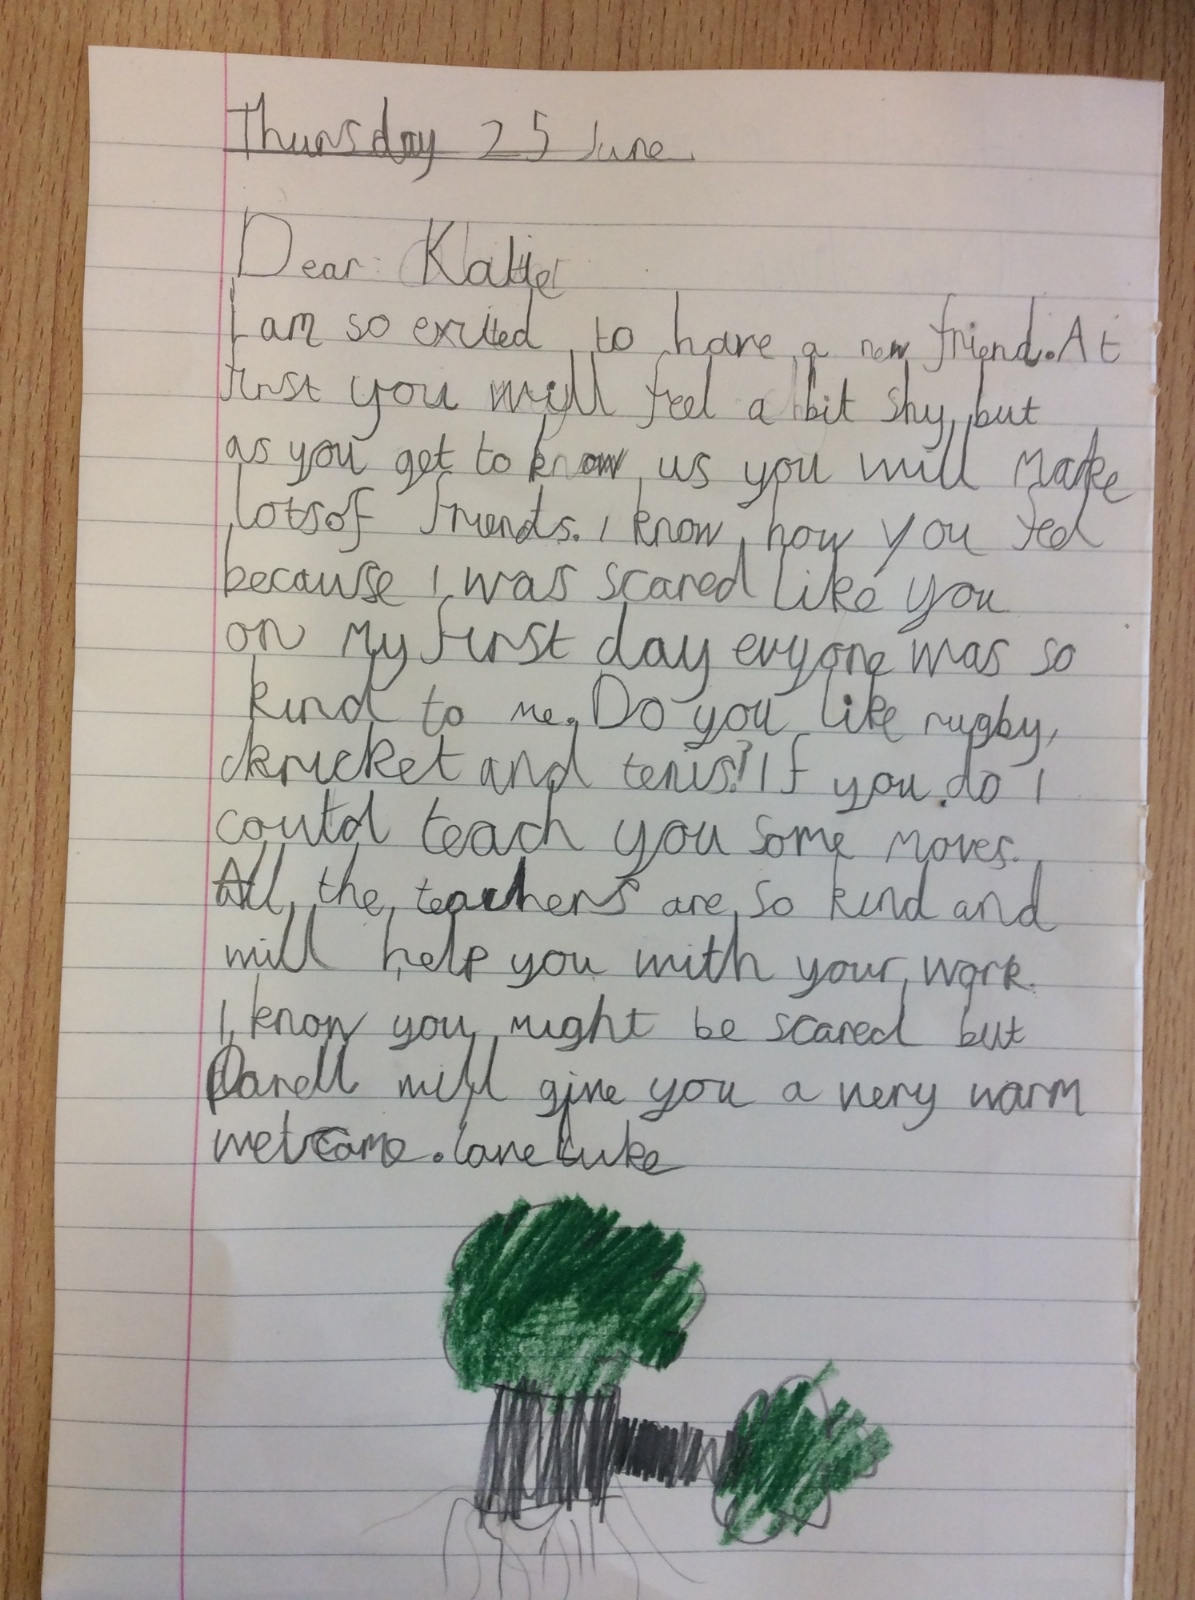 Thursday 25 June.
Dear: Katie
I am so exited to have a new friend. At
first you will feel a bit shy, but
as you get to know us you will make
lotsof friends. I know how you feel
because I was scared like you
on my first day evyone was so
kind to me. Do you like rugby,
ckricket and tenis? If you do I
could teach you some moves.
All the teachers are so kind and
will help you with your work.
I know you might be scared but
Darell will give you a very warm
welcome. love Luke